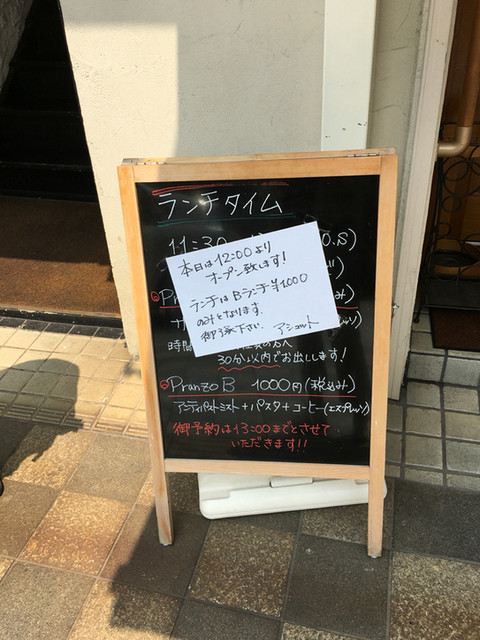 ランチタイム
11:30
O.S)
本日は12:00より
オープン致します!
ランチはBランチ¥1000
のみとなります。
御了承下さい。 アシェット
時間
30分以内でお出しします!
Pranzo B 1000円(税込み)
アンティパストミスト+パスタ+コーヒー(エスプレッソ)
御予約は13:00までとさせて
いただきます!!